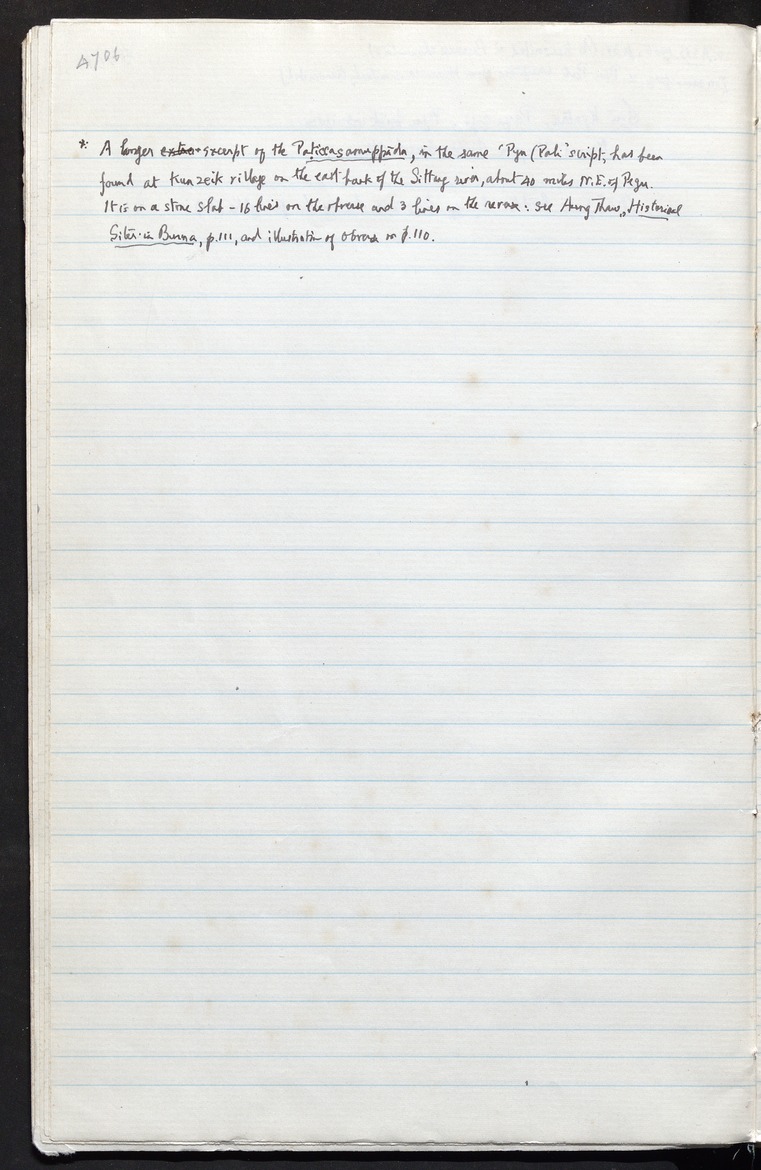 A706
* A longer extra excerpt of the Paticcasamuppāda, in the same 'Pyu (Pali' script, has been
found at Kunzeik village on the east bank of the Sittang river, about 40 miles N.E. of Pegu.
It is on a stone slab - 16 lines on the obverse and 3 lines on the reverse: see Aung Thaw, Historical
Sites in Burma, p.111, and illustration of obverse on p.110.